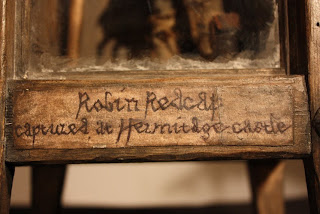 Robin Redcap
captured at Hermitage castle